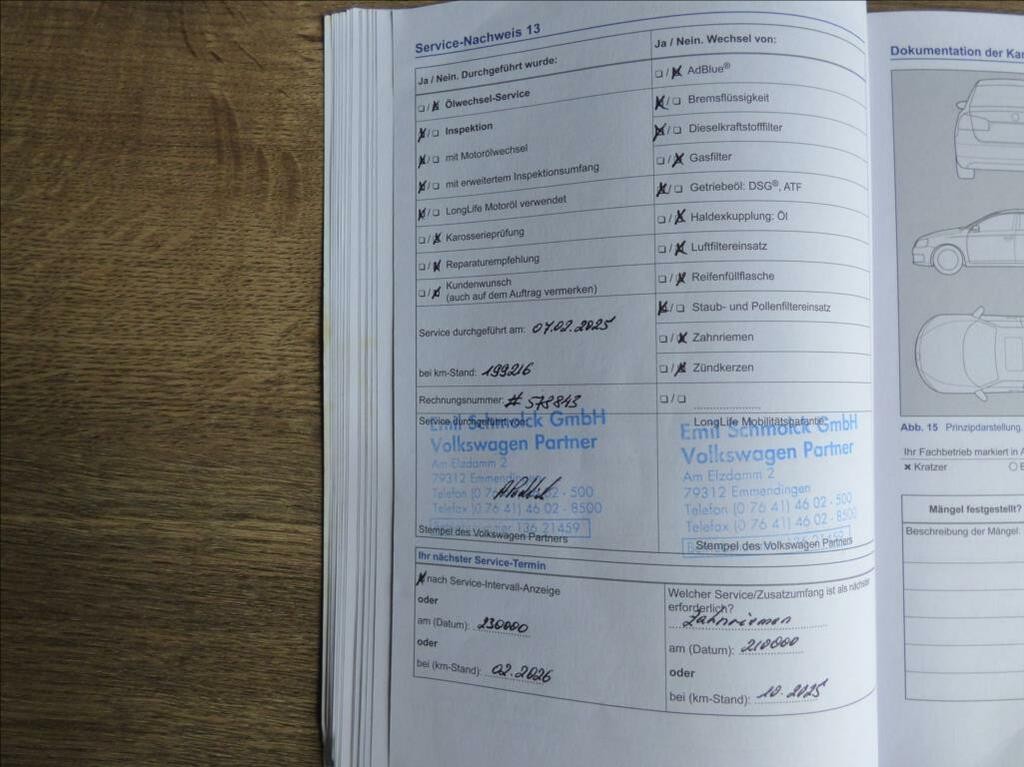 Service-Nachweis 13
Ja / Nein. Durchgeführt wurde:
Ölwechsel-Service
Inspektion
mit Motorölwechsel
mit erweitertem Inspektionsumfang
LongLife Motoröl verwendet
Karosserieprüfung
Reparaturempfehlung
Kundenwunsch
(auch auf dem Auftrag vermerken)
Service durchgeführt am: 07.02.2025
bei km-Stand: 199216
Rechnungsnummer: # 578843
Service durchgeführt von:
Emil Schmolck GmbH
Volkswagen Partner
Am Elzdamm 2
79312 Emmendingen
Telefon (0 76 41) 46 02 - 500
Telefax (0 76 41) 46 02 - 8500
136 21459
Stempel des Volkswagen Partners
Ja / Nein. Wechsel von:
AdBlue®
Bremsflüssigkeit
Dieselkraftstofffilter
Gasfilter
Getriebeöl: DSG®, ATF
Haldexkupplung: Öl
Luftfiltereinsatz
Reifenfüllflasche
Staub- und Pollenfiltereinsatz
Zahnriemen
Zündkerzen
LongLife Mobilitätsgarantie:
Emil Schmolck GmbH
Volkswagen Partner
Am Elzdamm 2
79312 Emmendingen
Telefon (0 76 41) 46 02 - 500
Telefax (0 76 41) 46 02 - 8500
Stempel des Volkswagen Partners
Ihr nächster Service-Termin
nach Service-Intervall-Anzeige
oder
am (Datum): 230000
oder
bei (km-Stand): 02.2026
Welcher Service/Zusatzumfang ist als nächster
erforderlich?
Zahnriemen
am (Datum): 210000
oder
bei (km-Stand): 10.2025
Dokumentation der
Abb. 15 Prinzipdarstellung.
Ihr Fachbetrieb markiert in
x Kratzer
Mängel festgestellt?
Beschreibung der Mängel: